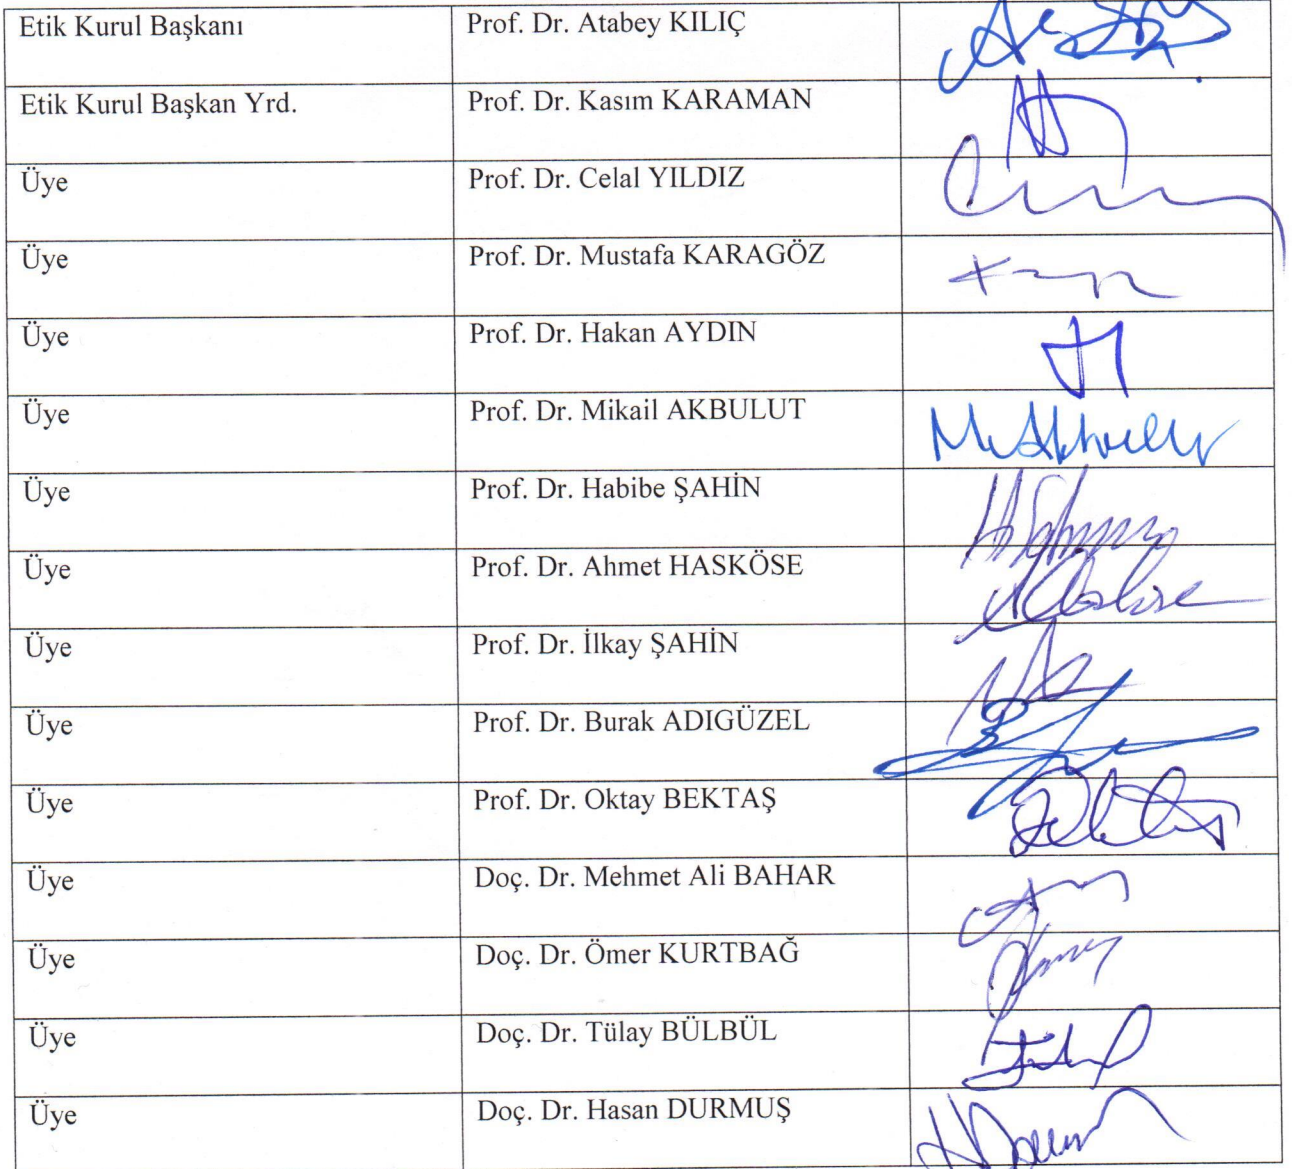 Etik Kurul Başkanı Prof. Dr. Atabey KILIÇ
Etik Kurul Başkan Yrd. Prof. Dr. Kasım KARAMAN
Üye Prof. Dr. Celal YILDIZ
Üye Prof. Dr. Mustafa KARAGÖZ
Üye Prof. Dr. Hakan AYDIN
Üye Prof. Dr. Mikail AKBULUT
Üye Prof. Dr. Habibe ŞAHİN
Üye Prof. Dr. Ahmet HASKÖSE
Üye Prof. Dr. İlkay ŞAHİN
Üye Prof. Dr. Burak ADIGÜZEL
Üye Prof. Dr. Oktay BEKTAŞ
Üye Doç. Dr. Mehmet Ali BAHAR
Üye Doç. Dr. Ömer KURTBAĞ
Üye Doç. Dr. Tülay BÜLBÜL
Üye Doç. Dr. Hasan DURMUŞ